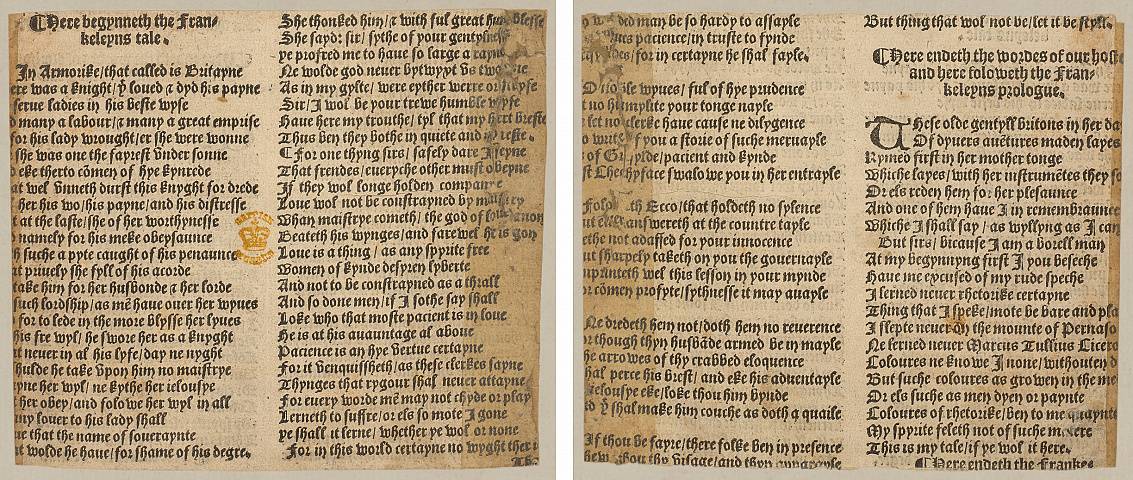 ¶Here begynneth the Fran-
keleyns tale.
In Armorike/that called is Britayne
ere was a knight/ẙ loued & dyd his payne
serue ladies in his beste wyse
d many a labour/& many a great emprise
for his lady wrought/er she were wonne
she was one the fayrest vnder sonne
d eke therto cōmen of hye kynrede
at wel vnneth durst this knyght for drede
her his wo/his payne/and his distresse
t at the laste/she of her worthynesse
d namely for his meke obeysaunce
h suche a pyte caught of his penaunce
at priuely she fyll of his acorde
take him for her husbonde & her lorde
such lordship/as mē haue ouer her wyues
d for to lede in the more blysse her lyues
his fre wyl/he swore her as a knyght
at neuer in al his lyfe/day ne nyght
hulde he take vpon him no maistrye
yne her wyl/ne kythe her ielousye
t her obey/and folowe her wyl in all
my louer to his lady shall
ue that the name of soueraynte
t wolde he haue/for shame of his degre.
She thonked him/& with ful great humblesse
She sayd: sir/sythe of your gentylnesse
ye profred me to haue so large a rayne
Ne wolde god neuer bytwyxt vs two
As in my gylte/were eyther werre or stryfe
Sir/I wol be your trewe humble wyfe
Haue here my trouthe/tyl that my hert breste
Thus ben they bothe in quiete and in reste.
¶For one thyng sirs/safely dare I seyne
That frendes/eueryche other must obeyne
If they wol longe holden companye
Loue wol not be constrayned by maistry
whan maistrye cometh/the god of loue anon
Beateth his wynges/and farewel he is gon
Loue is a thing/as any spyrite free
women of kynde desyren lyberte
And not to be constrayned as a thrall
And so done men/if I sothe say shall
Loke who that moste pacient is in loue
He is at his auauntage al aboue
Pacience is an hye vertue certayne
For it venquissheth/as these clerkes sayne
Thynges that rygour shal neuer attayne
For euery worde mē may not chyde or play
Lerneth to suffre/or els so mote I gone
ye shall it lerne/whether ye wol or none
For in this world certayne no wyght ther i
ded man be so hardy to assayle
wyues pacience/in truste to fynde
des/for in certayne he shal fayle.
O noble wyues/ful of hye prudence
t no humplite your tonge nayle
let no clerke haue cause ne dilygence
writ of you a storie of suche meruayle
s of Grisylde/pacient and kynde
st Chechyface swalowe you in her entrayle
Folo th Ecco/that holdeth no sylence
t euer answereth at the countre tayle
ethe not adassed for your innocence
ut sharpely taketh on you the gouernayle
mprinteth wel this lesson in your mynde
or cōmen profyte/sythnesse it may auayle
Ne dredeth hem not/doth hem no reuerence
or though thyn husbāde armed be in mayle
he arrowes of thy crabbed eloquence
hal perce his brest/and eke his aduentayle
ielousye eke/loke thou him bynde
nd ẙ shal make him couche as doth a quaile
If thou be fayre/there folke ben in presence
Shew thou thy visage/and thyn apparayle
But thing that wol not be/let it be styll.
¶Here endeth the wordes of our hoste
and here foloweth the Fran-
keleyns prologue.
These olde gentyll britons in her da
Of dyuers auētures maden layes
Rymed first in her mother tonge
whiche layes/with her instrumētes they so
Or els reden hem for her plesaunce
And one of hem haue I in remembraunce
whiche I shall say/as wyllyng as I can
But sirs/bicause I am a borell man
At my begynnyng first I you beseche
Haue me excused of my rude speche
I lerned neuer rhetorike certayne
Thing that I speke/mote be bare and pla
I slepte neuer on the mounte of Pernaso
Ne lerned neuer Marcus Tullius Cicero
Coloures ne knowe I none/withouten d
But suche coloures as growen in the me
Or els suche as men dyen or paynte
Coloures of rhetorike/ben to me quaynte
My spyrite feleth not of suche matere
This is my tale/if ye wol it here.
¶Here endeth the Franke-